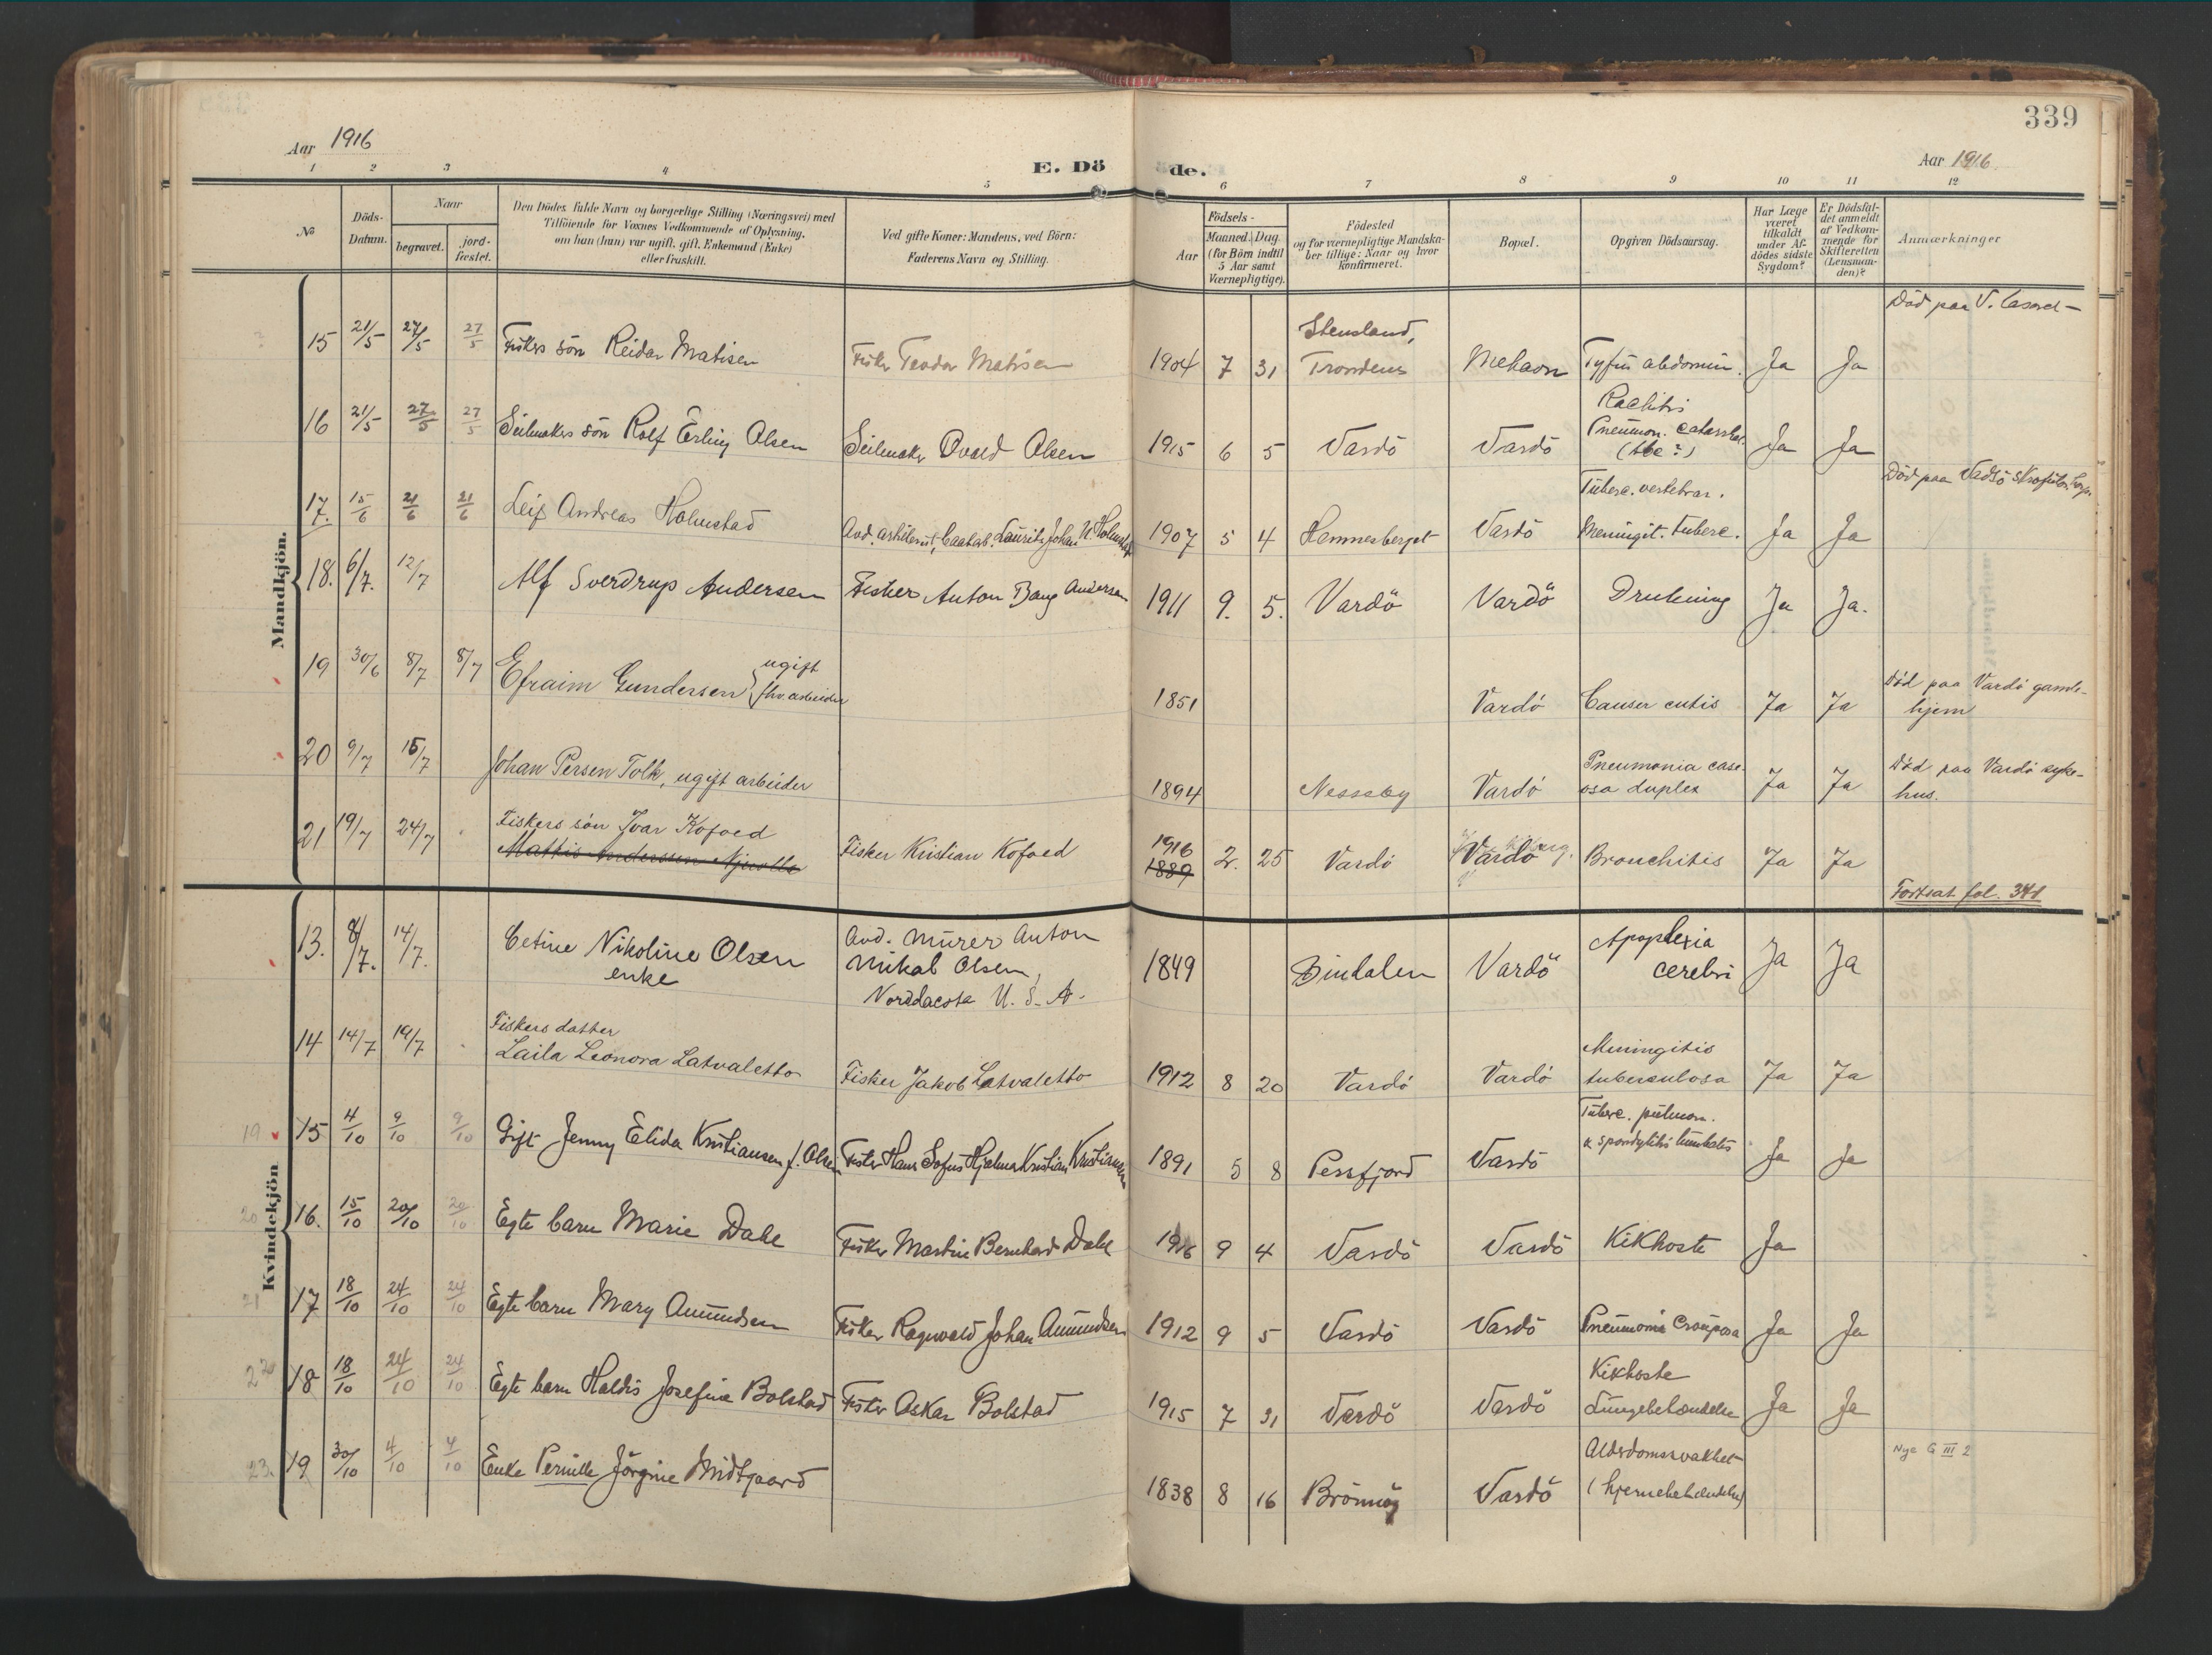 339
Aar 1916
E. Döde.
Aar 1916
1 2 3 4 5 6 7 8 9 10 11 12
№
Döds-Datum.
Naar
begravet.
jord-fæstet.
Den Dödes fulde Navn og borgerlige Stilling (Næringsvei) med
Tilföiende for Voxnes Vedkommende af Oplysning,
om han (hun) var ugift, gift, Enkemand (Enke)
eller fraskilt.
Ved gifte Koner: Mandens, ved Börn:
Faderens Navn og Stilling.
Födsels-
Aar
Maaned. Dag.
(for Börn indtil
5 Aar samt
Værnepligtige).
Födested
og for værnepligtige Mandska-
ber tillige: Naar og hvor
konfirmeret.
Bopæl.
Opgiven Dödsaarsag.
Har Læge
været
tilkaldt
under Af-
dödes sidste
Sygdom?
Er Dödsfal-
det anmeldt
af Vedkom-
mende for
Skifteretten
(Lensman-
den)?
Anmærkninger
Mandkjön.
15 21/5 27/5 27/5 Fiskers sön Reidar Matisen Fisker Teodor Matisen 1904 7 31 Stensland, Trondenes Mehavn Tyfus abdomin. Ja Ja Död paa V. lasaret
16 21/5 27/5 27/5 Seilmakers sön Rolf Erling Olsen Seilmaker Ovald Olsen 1915 6 5 Vardö Vardö Rachitis Pneumon. catarrhal. (tbc?) Ja Ja
17. 15/6 21/6 21/6 Leif Andreas Holmstad Avd. Laurits Johan N. Holmstad 1907 5 4 Hemnesberget Vardö Tuberc. vertebrar. Meningit. tuberc. Ja Ja Död paa Vadsö skrofulösehosp.
18. 6/7. 12/7 Alf Sverdrup Andersen Fisker Anton Bang Andersen 1911 9. 5. Vardö Vardö Drukning Ja Ja.
19 30/6 8/7 8/7 Efraim Gundersen ugift fhv. arbeider 1851 Vardö Cancer cutis Ja Ja Död paa Vardö gamle-
hjem
20 9/7 15/7 Johan Persen Tolk, ugift arbeider 1894 Nesseby Vardö Pneumonia case-
osa duplex Ja Ja Död paa Vardö syke-
hus.
21 19/7 24/7 Fiskers sön Ivar Kofoed
Mathis Anderssen Njuolla
Fisker Kristian Kofoed 1916 1889 2. 25 Vardö Vardö Bronchitis Ja Ja
Fortsat fol. 341
Kvindekjön
13. 8/7. 14/7. Cetine Nikoline Olsen
enke
Avd. Murer Anton
Mikal Olsen,
Norddacota U. S. A.
1849 Bindalen Vardö Apoplexia
cerebri Ja Ja
14 14/7 19/7 Fiskers datter
Laila Leonora Latvaletto Fisker Jakob Latvaletto 1912 8 20 Vardö Vardö Meningitis
tuberculosa Ja Ja
19 15 4/10 9/10 9/10 Gift Jenny Elida Kristiansen f. Olsen Fisker Hans Sofus Hjalmar Kristian Kristiansen 1891 5 8 Persfjord Vardö Tuberc. pulmon.
& spondylitis lumbalis Ja Ja
20 16. 15/10 20/10 20/10 Egte barn Marie Dahl Fisker Martin Bernhard Dahl 1916 9 4 Vardö Vardö Kikhoste Ja
21 17 18/10 24/10 24/10 Egte barn Mary Amundsen Fisker Ragnvald Johan Amundsen 1912 9 5 Vardö Vardö Pneumoni crouposa Ja Ja
22 18 18/10 24/10 24/10 Egte barn Haldis Josefine Bolstad Fisker Oskar Bolstad 1915 7 31 Vardö Vardö Kikhoste
Lungebetændelse Ja Ja
23. 19 30/10 4/10 4/10 Enke Pernille Jörgine Midtgaard 1838 8 16 Brönnöy Vardö Alderdomssvakhet
(hjernebetændelse) Nye G III 2